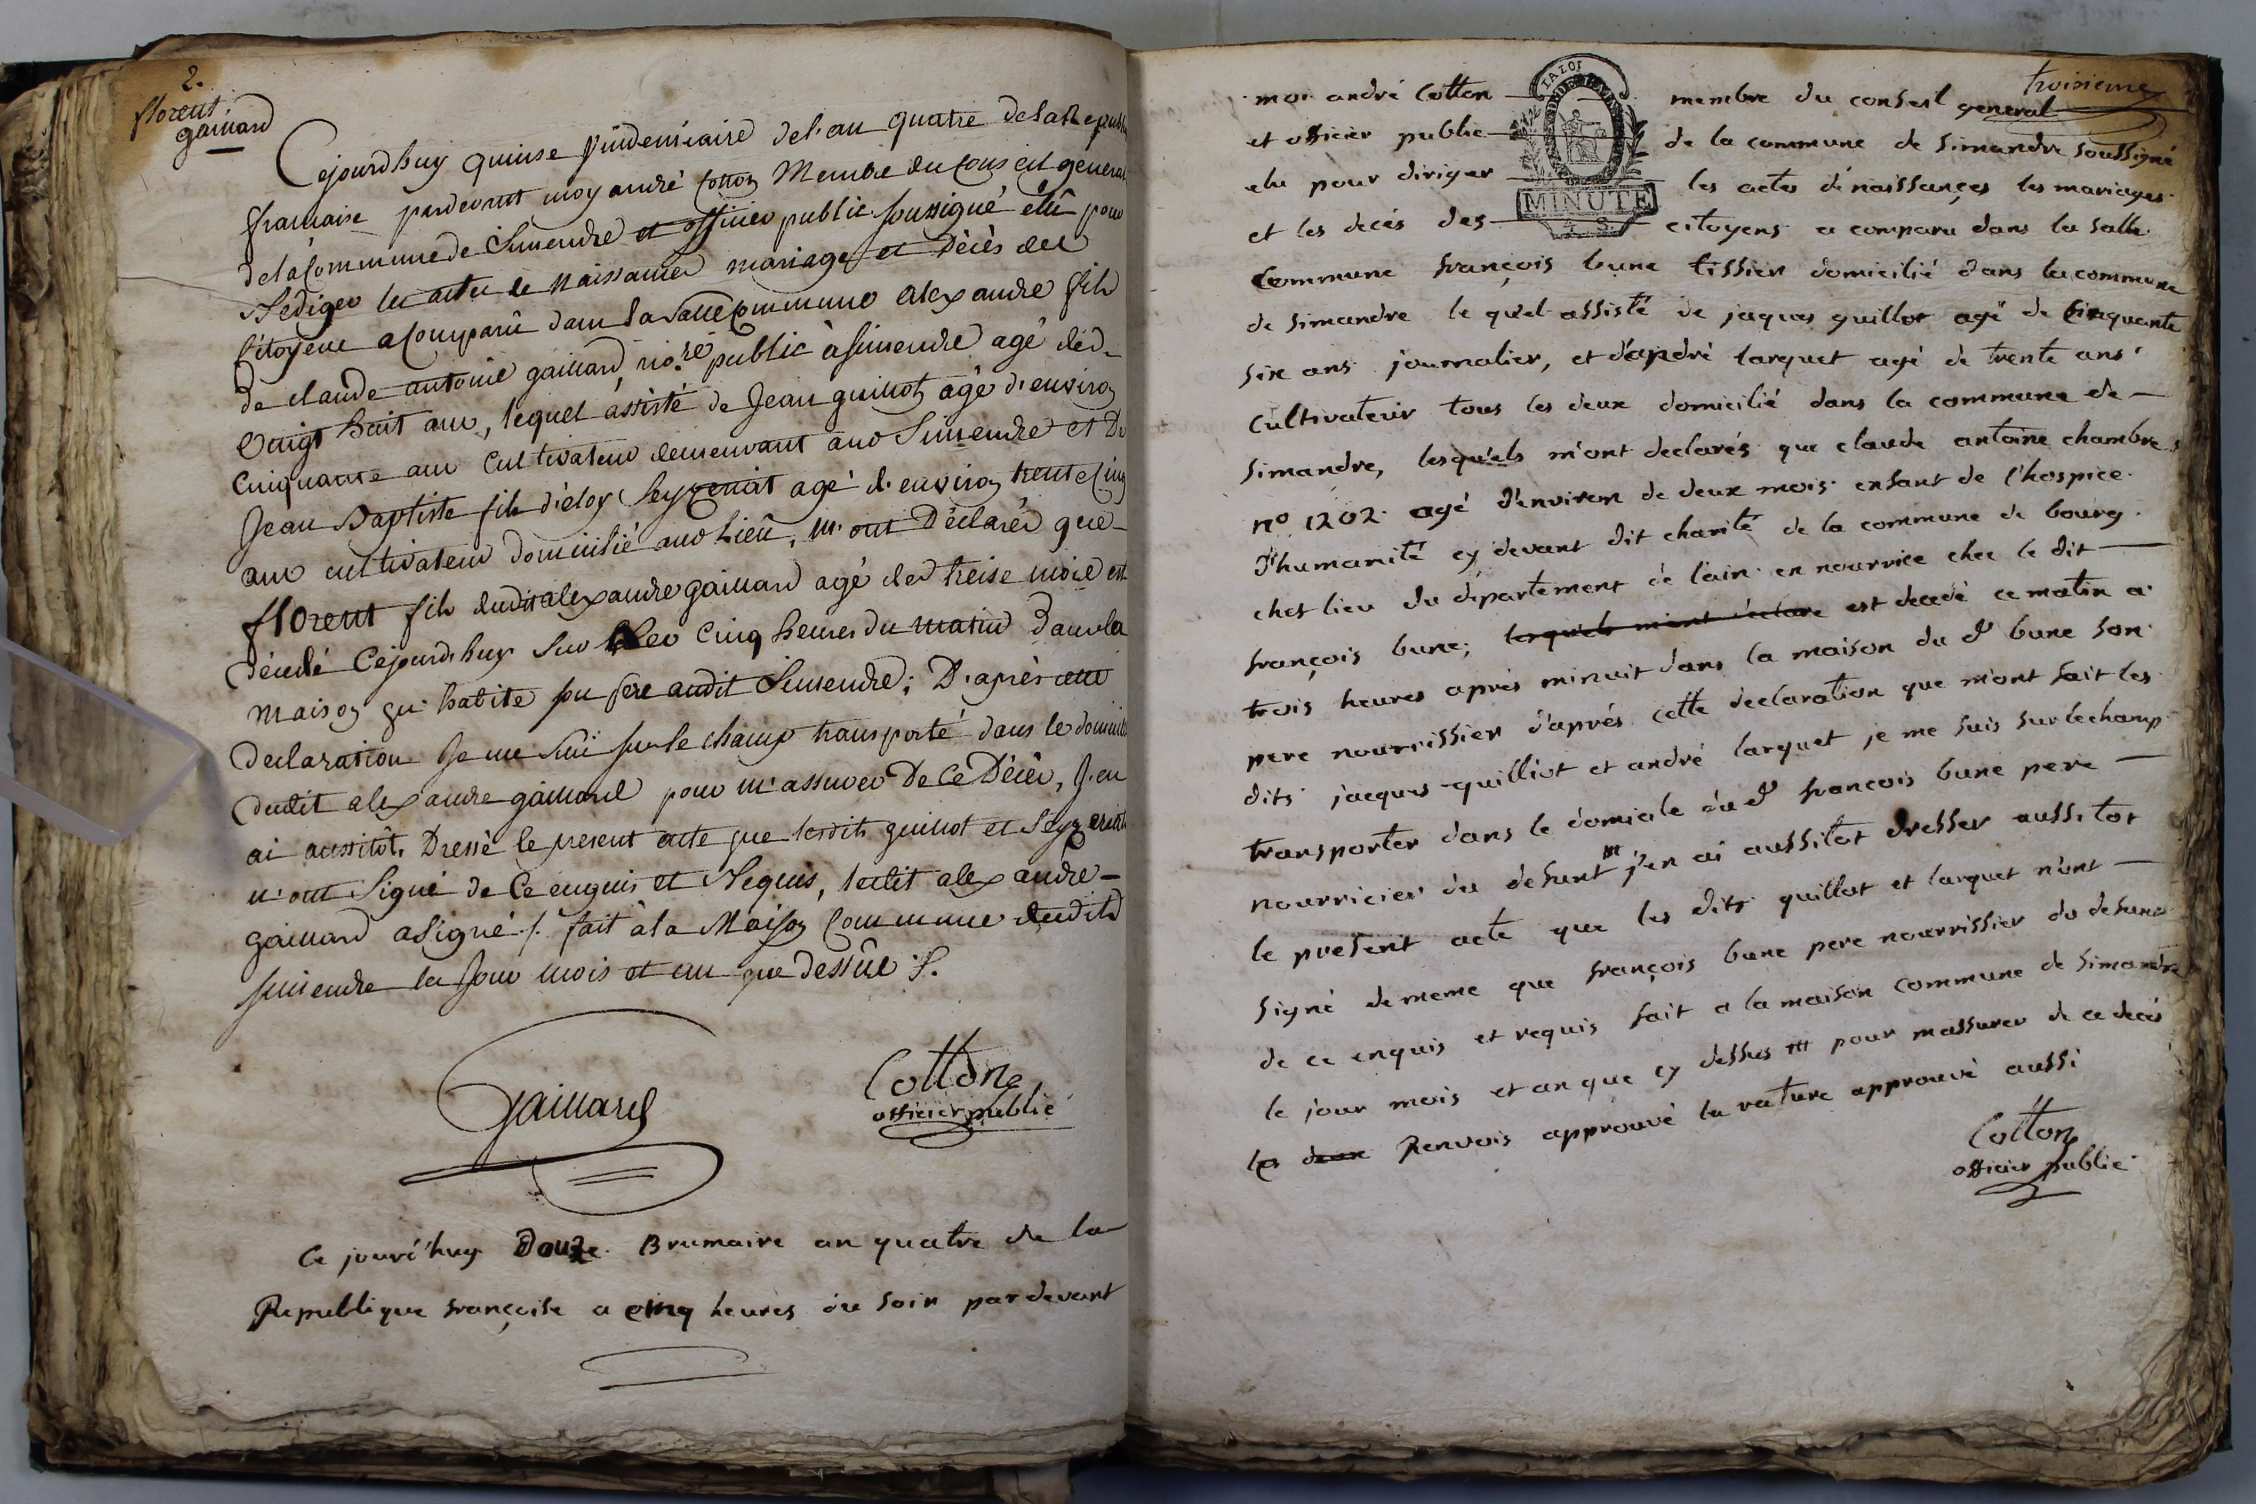 2.
florent
gaillard
Cejourdhuy quinse vindemiaire de l'an quatre de la Republi
française pardevant moy andré Cotton Membre du Conseil general
de la Commune de Simendre et officier public soussigné élû pour
Rediger les actes de Naissances mariages et Décès des
Citoyens a Comparû dans la Salle Commune alexandre fils
de claude antoine gaillard no.re public à Simendre agé de d-
vingt huit ans, lequel assisté de Jean guillot agé d'environ
Cinquante ans Cultivateur demeurant aud Simendre et De
Jean Baptiste fils d'éloy agé d'environ trente Cinq
ans cultivateur domicilié aud Lieû, m'ont Déclarés que
florent fils dudit alexandre gaillard agé de treise mois est
décedé Cejourdhuy Sur les Cinq heures du matin Dans la
maison qu'habite son pere audit Simendre; D'après cette
declaration Je me suis sur le champ transporté dans le domicile
dudit alexandre gaillard pour m'assurer De Ce Décès, J'en
ai aussitôt Dressé le present acte que lesdits guillot et
n'ont Signé de Ce enquis et Requis, ledit alexandre
gaillard a Signé /. fait à la Maison Commune dudit
Simendre les Jour mois et an que dessus /.
Gaillard
Cotton
officier public
Ce jourd'huy Douze Brumaire an quatre de la
Republique françoise a cinq heures du soir pardevant
troisieme
moi andré Cotton membre du conseil general
et officier public de la commune de simandre soussigné
elu pour diriger les actes de naissances les mariages
et les decés des citoyens a comparu dans la salle
LA LOI
MINUTE
Commune françois bune tissier domicilié dans la commune
de simandre le quel assisté de jaques guillot agé de Cinquante
six ans journalier, et d'andré larquet agé de trente ans
cultivateur tous les deux domicilié dans la commune de
simandre, lesquels m'ont declarés que claude antoine chambre
no 1202 agé d'environ de deux mois enfant de l'hospice
d'humanité cy devant dit charité de la commune de bourg
chef lieu du departement de l'ain en nourrice chez le dit
françois bune; lesquels m'ont declare est decedé ce matin a
trois heures aprés minuit dans la maison du d bune son
pere nourrissier d'aprés cette declaration que m'ont fait les
dits jacques quilliot et andré larquet je me suis sur le champ
transporter dans le domicile du d françois bune pere
nourricier du defunt m j'en ai aussitot dresser aussitot
le present acte que les dits quillot et larquet n'ont
signé de meme que françois bune pere nourrissier du defunt
de ce enquis et requis fait a la maison commune de simandre
le jour mois et an que cy dessus m pour massurer de ce decés
les deux Renvois approuvé la rature approuvé aussi
Cotton
officier public